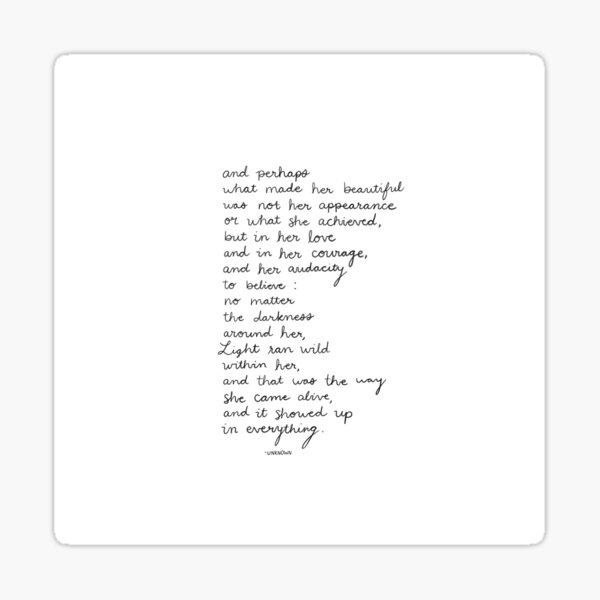 and perhaps
what made her beautiful
was not her appearance
or what she achieved,
but in her love
and in her courage,
and her audacity
to believe :
no matter
the darkness
around her,
Light ran wild
within her,
and that was the way
she came alive,
and it showed up
in everything.
-UNKNOWN